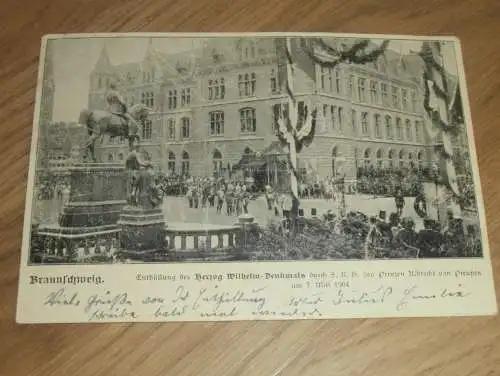 Braunschweig. Enthüllung des Herzog Wilhelm-Denkmals durch S. K. H. den Prinzen Albrecht von Preußen
am 7. Mai 1904.
Viele Grüße von der Enthüllung Emilie
schreibe bald mal wieder.